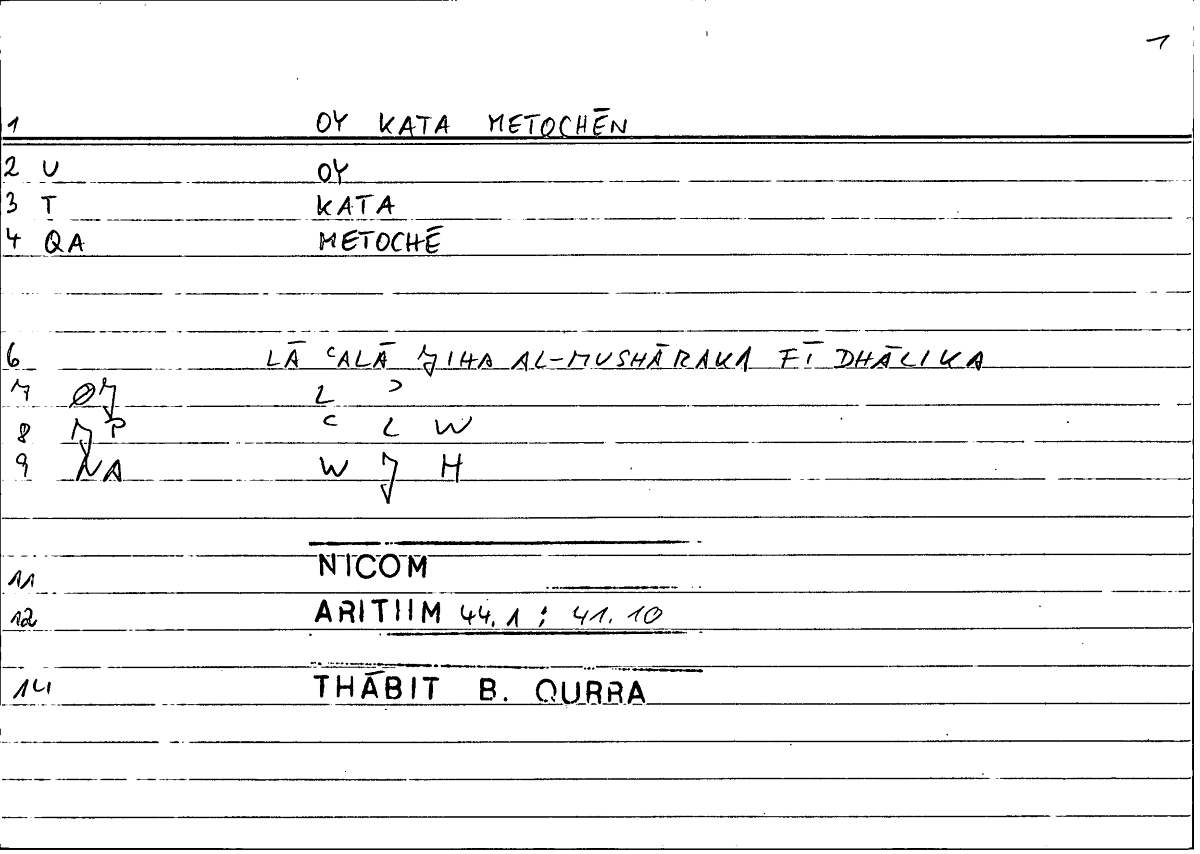 1
1 OY KATA METOCHĒN
2 U OY
3 T KATA
4 QA METOCHĒ
6 LĀ ʿALĀ JIHA AL-MUSHĀRAKA FĪ DHĀLIKA
7 ØJ L ʾ
8 JP ʿ L W
9 NA W J H
11 NICOM
12 ARITIIM 44.1 : 41.10
14 THĀBIT B. QURRA